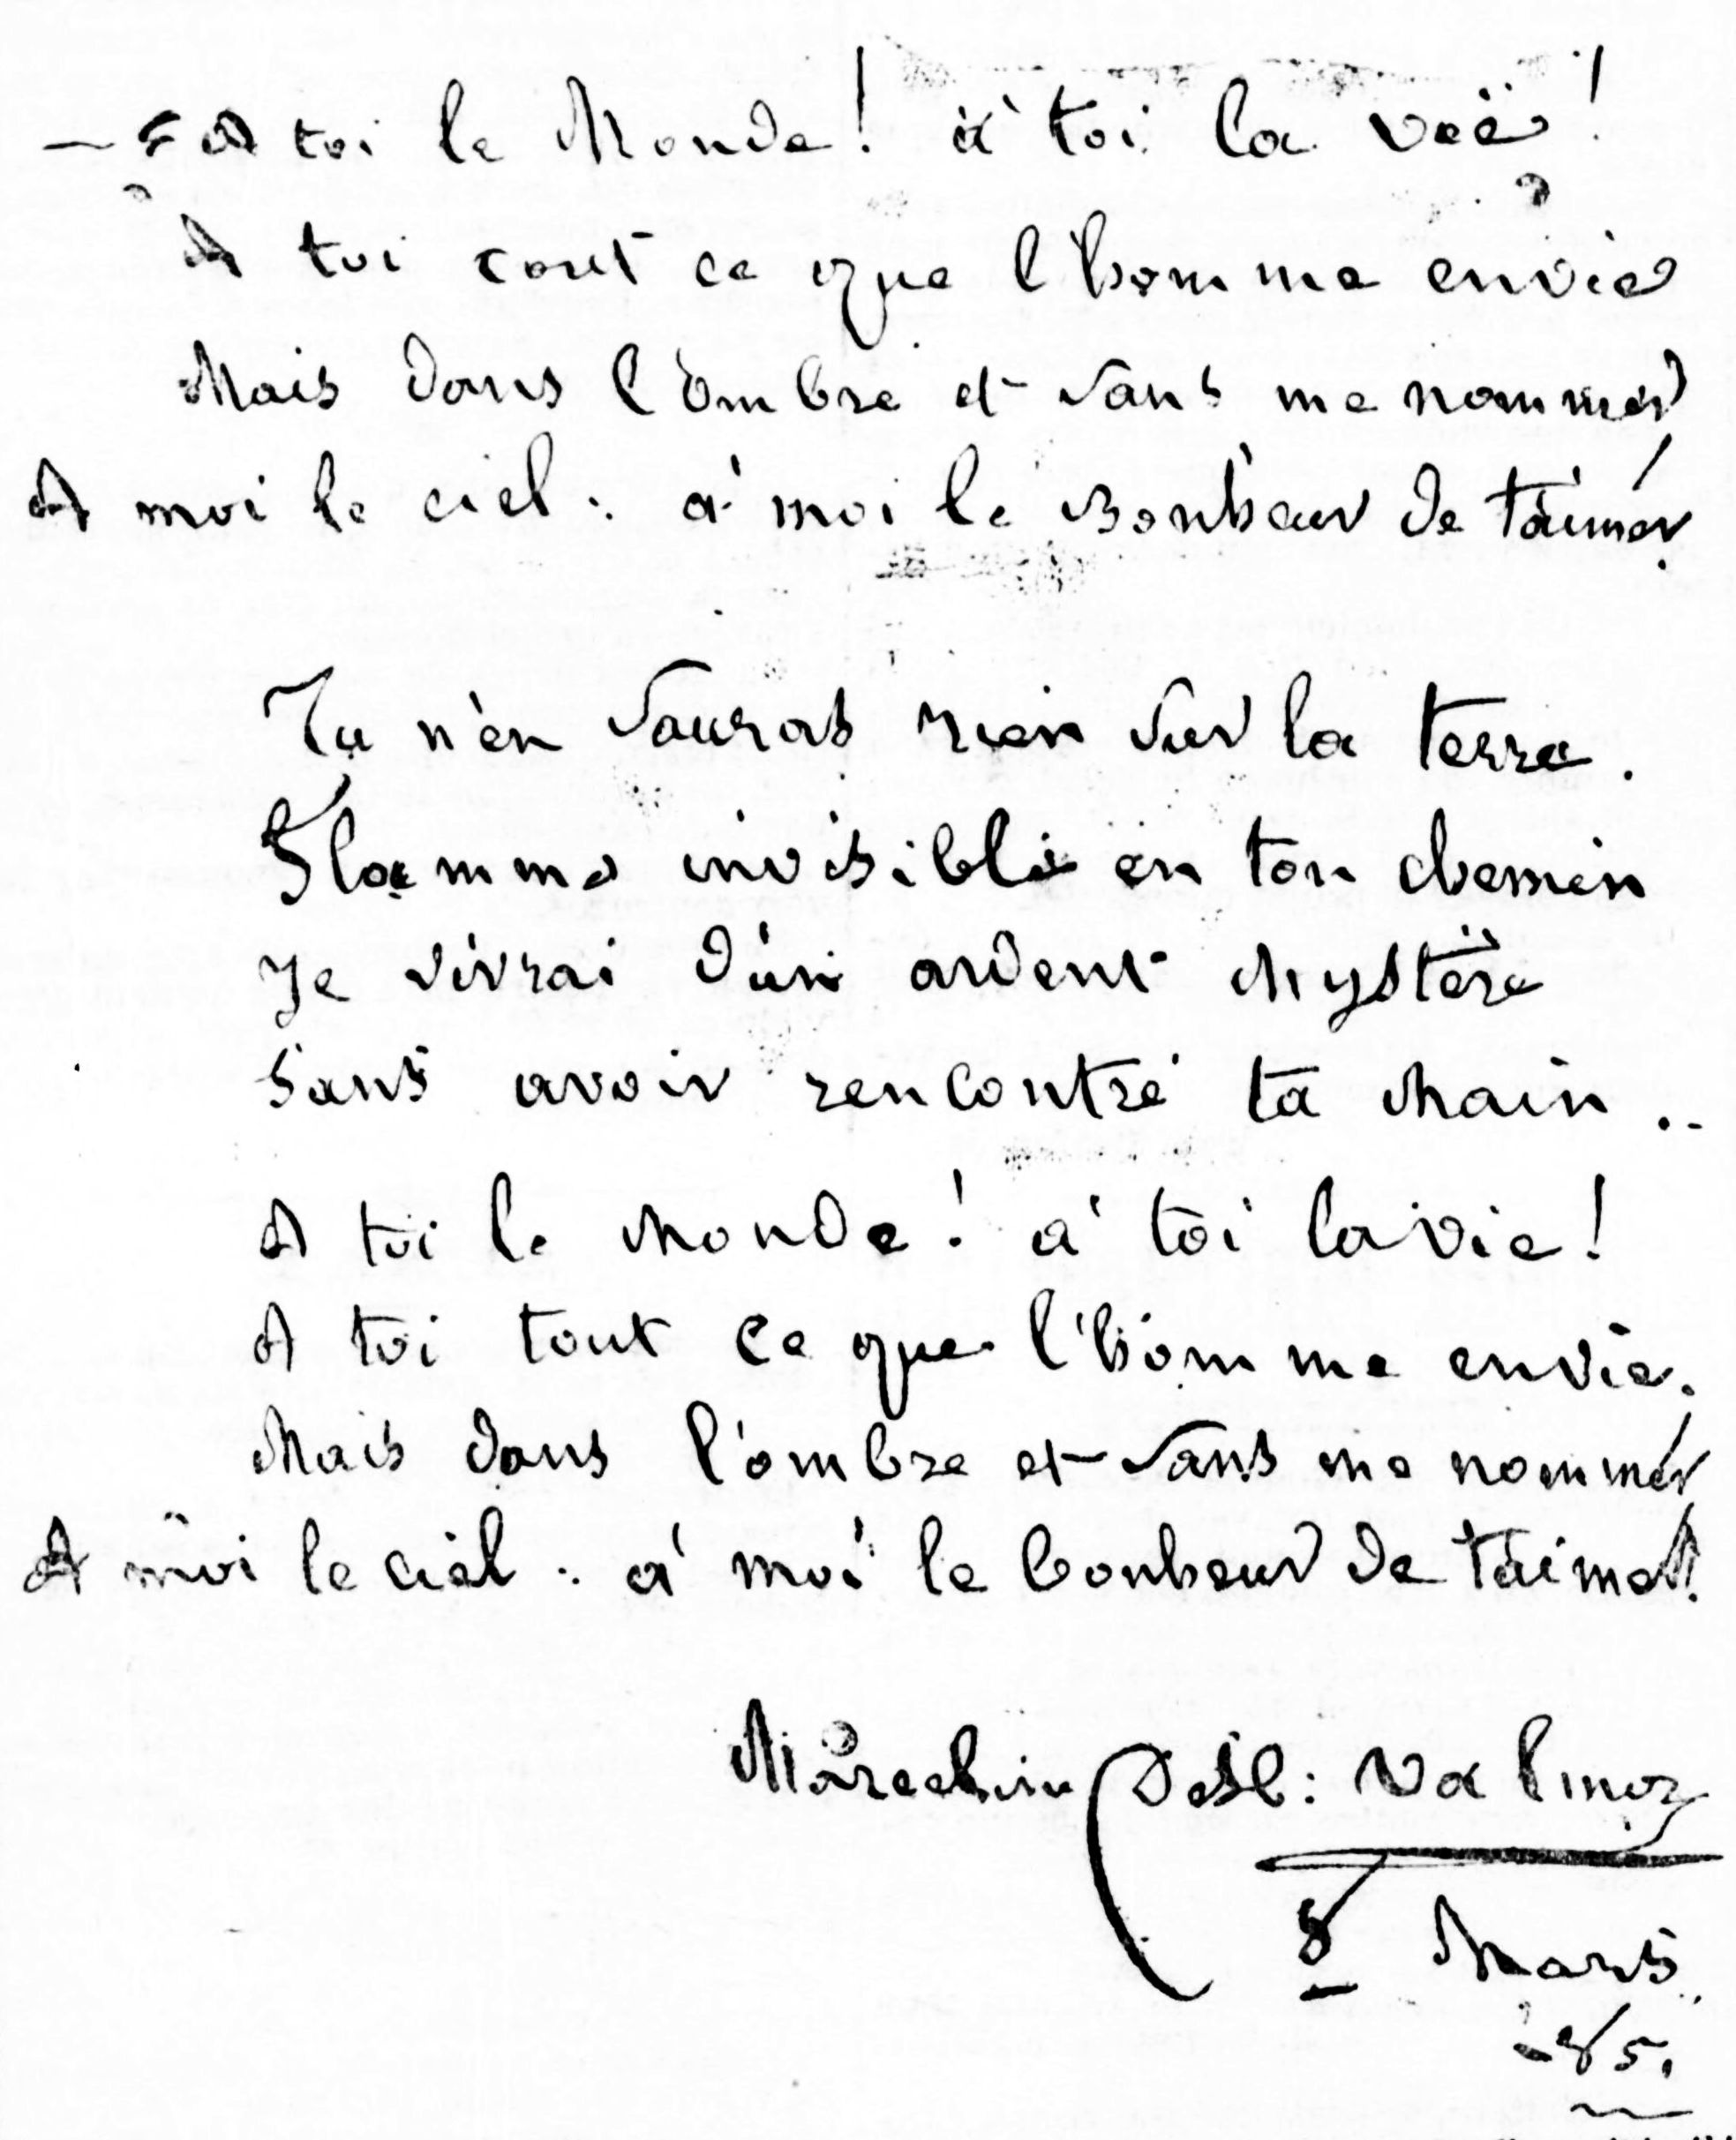 A toi le Monde! à toi la vie!
A toi tout ce que l'homme envie
Mais dans l'ombre et sans me nommer
A moi le ciel : à moi le Bonheur de t'aimer!
Tu n'en sauras rien sur la terre.
Flamme invisible en ton chemin
Je vivrai d'un ardent Mystère
Sans avoir rencontré ta Main ..
A toi le Monde! à toi la vie!
A toi tout ce que l'homme envie.
Mais dans l'ombre et sans me nommer
A moi le ciel : à moi le bonheur de t'aimer!
Marceline Desb: Valmor
8 Mars